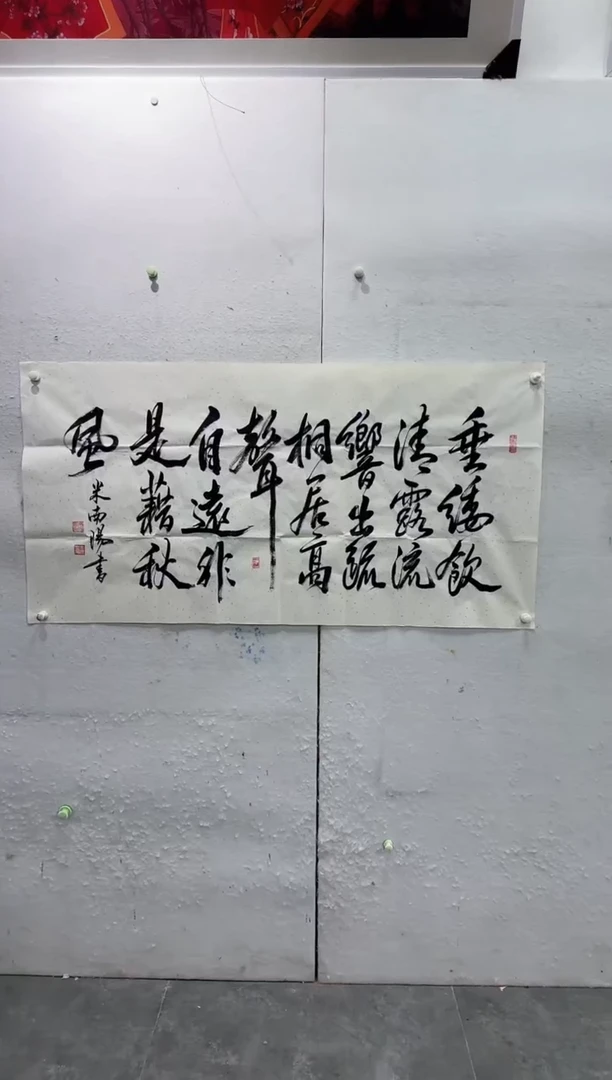 垂緌飲
清露流
響出疏
桐居高
聲
自遠非
是藉秋
風
米南陽書